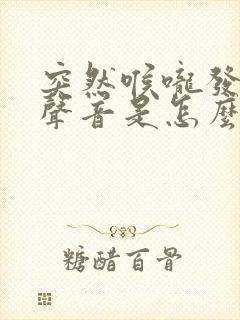 突然喉嚨發
聲音是怎麼
糖醋百骨